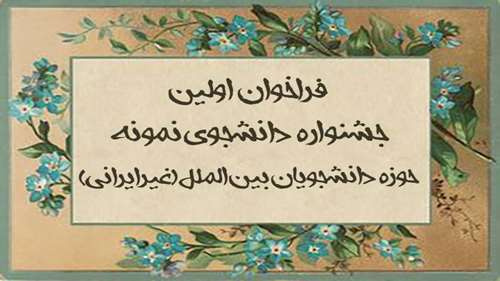 فراخوان اولین
جشنواره دانشجوی نمونه
حوزه دانشجویان بین الملل (غیرایرانی)